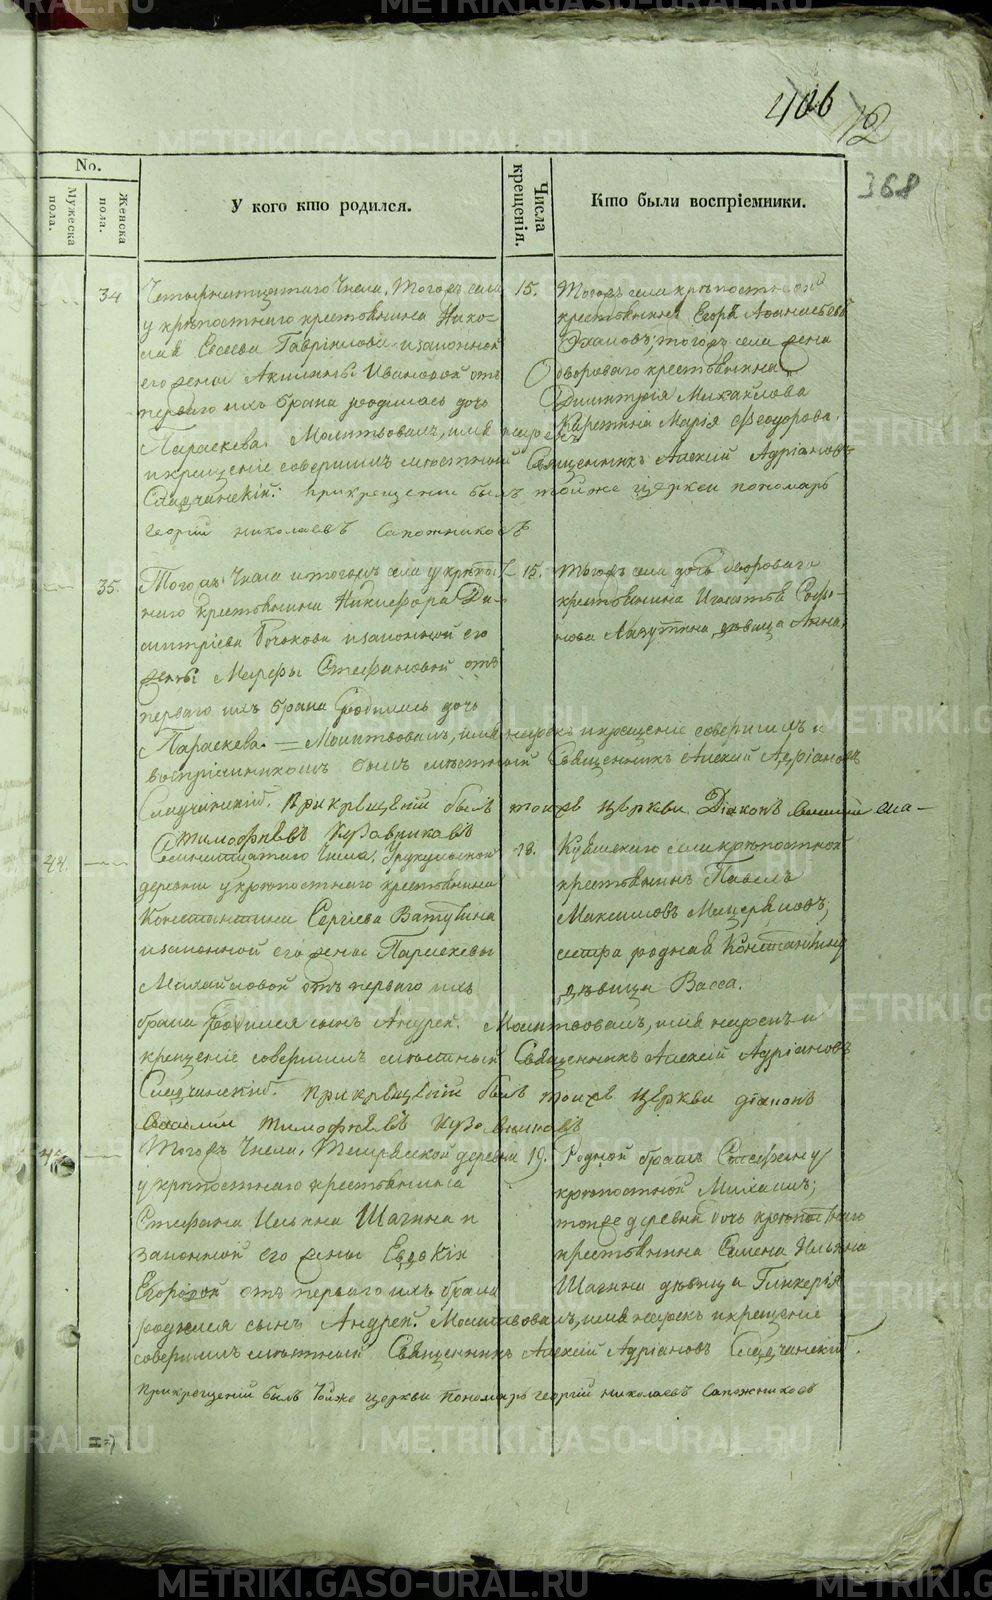 406
12
368
No.
Мужеска пола.
Женска пола.
У кого кто родился.
Числа крещенія.
Кто были воспріемники.
34
Четырнатцатаго Числа, тогожъ села
у крѣпостнаго крестьянина Нико-
лая Евсеева Гаврилова и законной
его жены Акилины Ивановой отъ
перваго ихъ брака родилась дочь
Параскева. Молитвовалъ, имя нарекъ
и крещеніе совершилъ мѣстный Священникъ Алексій Адріановъ
Слудчанскій. при крещеніи былъ тойже церкви пономарь
Георгій Николаевъ Сапожниковъ
15.
Тогожъ села крѣпостной
крестьянинъ Егоръ Афанасьевъ
тогожъ села жена
дворового крестьянина
Димитрія Михайлова
Марія Ѳеодорова.
35.
Тогожъ Числа и тогожъ села у крѣпост-
наго крестьянина Никифора Ди-
митріева и законной его
жены Марфы Стефановой отъ
перваго ихъ брака родилась дочь
Параскева. Молитвовалъ, имя нарекъ и крещеніе совершилъ и
воспріемникомъ былъ мѣстный Священникъ Алексій Адріановъ
Слудчанскій. При крещеніи былъ тоихже церкви Діаконъ
Тимофѣевъ
15.
Тогожъ села дочь двороваго
крестьянина Игнатья
Лазутина, дѣвица Анна.
44.
Семнатцатаго Числа,
деревни у крѣпостнаго крестьянина
Константина Сергіева Ватутина
и законной его жены Параскевы
Михайловой отъ перваго ихъ
брака родился сынъ Андрей. Молитвовалъ, имя нарекъ и
крещеніе совершилъ мѣстный Священникъ Алексій Адріановъ
Слудчанскій. при крещеніи былъ тоихже церкви діаконъ
Василій Тимофѣевъ
18.
села крѣпостной
крестьянинъ Павелъ
Максимовъ
сестра родная Константину
дѣвица Васса.
Тогожъ Числа, деревни
у крѣпостнаго крестьянина
Стефана Ильина Шагина и
законной его жены Евдокіи
Егоровой отъ перваго ихъ брака
родился сынъ Андрей. Молитвовалъ, имя нарекъ и крещеніе
совершилъ мѣстный Священникъ Алексій Адріановъ Слудчанскій.
при крещеніи былъ тойже церкви пономарь Георгій Николаевъ Сапожниковъ
19.
Родной братъ Стефану
крѣпостной Михаилъ;
тоеже деревни дочь крѣпостнаго
крестьянина Семена Ильина
Шагина дѣвица Гликерія
METRIKI.GASO-URAL.RU